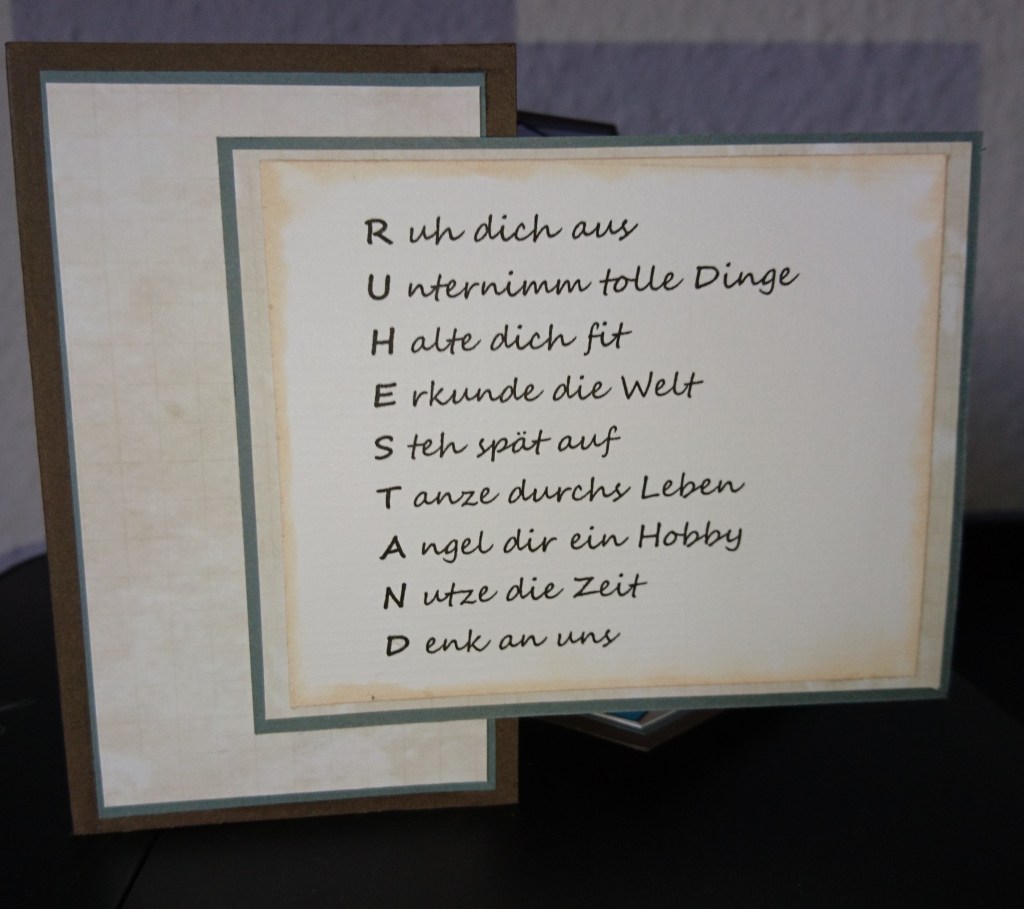 R uh dich aus
U nternimm tolle Dinge
H alte dich fit
E rkunde die Welt
S teh spät auf
T anze durchs Leben
A ngel dir ein Hobby
N utze die Zeit
D enk an uns